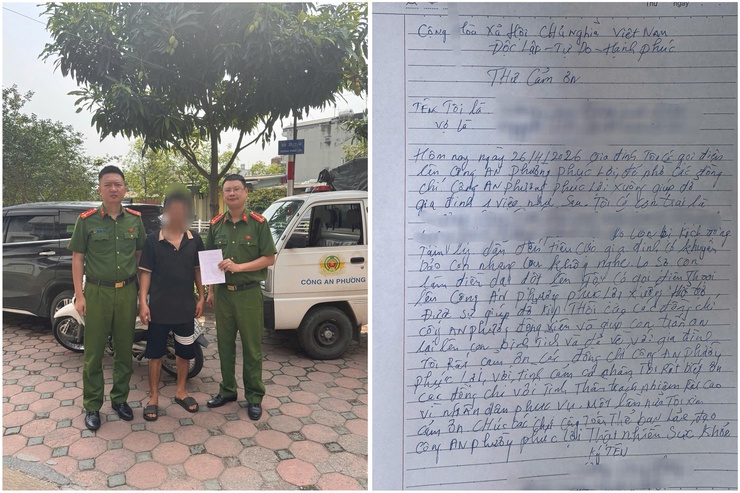 CÔNG AN PHƯỜNG
Thứ ngày
Cộng hòa xã Hội chủ nghĩa việt Nam
Độc Lập - Tự Do - Hạnh phúc
Thư Cảm ơn
TÊN Tôi là
vợ là
Hôm nay ngày 26/4/2026 gia đình Tôi có gọi điện
lên Công AN phường phúc Lợi, để nhờ các đồng
chí Công AN phường phúc Lợi xuống giúp đỡ
gia đình 1 việc như Sau Tôi có con trai là
do con bị kích động
Tâm lý dẫn đến tiêu cực gia đình có khuyên
bảo con nhưng con không nghe lo sợ con
làm điều dại dột lên Tôi có gọi điện Thoại
lên Công AN phường phúc Lợi xuống hỗ trợ
Được sự giúp đỡ kịp Thời của các đồng chí
công AN phường động viên và giúp con Trấn an
lại lên con bình Tĩnh và đã về với gia đình
Tôi Rất cảm ơn các đồng chí Công AN phường
phúc Lợi, với Tình cảm cá nhân Tôi Rất biết ơn
các đồng chí với Tinh Thần trách nhiệm Rất cao
vì nhân dân phục vụ. Một lần nữa Tôi xin
cảm ơn chúc các Thể ban Lãnh đạo
công AN phường phúc Lợi Thật nhiều Sức khỏe
ký TÊN